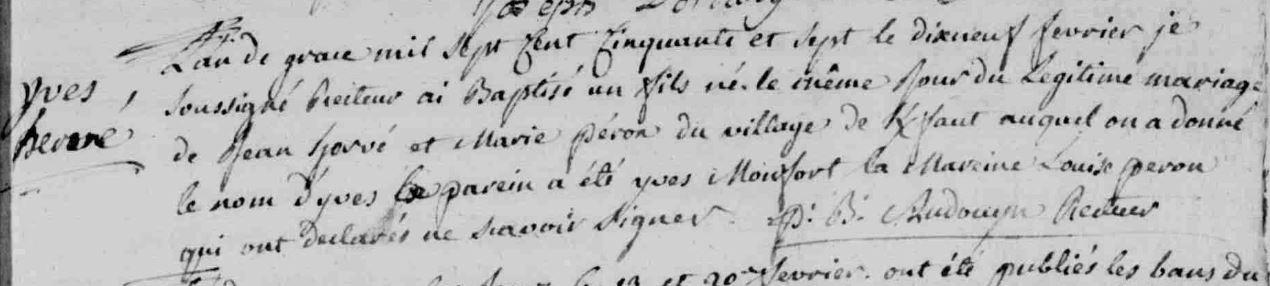 Joseph
L'an de grace mil sept Cent Cinquante et sept le dixneuf fevrier je
yves
hervé
soussigné Recteur ai Baptisé un fils né le même jour du Légitime mariage
de Jean hervé et Marie péron du village de K/faut auquel on a donné
le nom d'yves le parein a été yves Monfort la Mareine Louise peron
qui ont declarés ne scavoir signer. p: B: Audouyn Recteur
et 20e fevrier ont été publiés les bans du